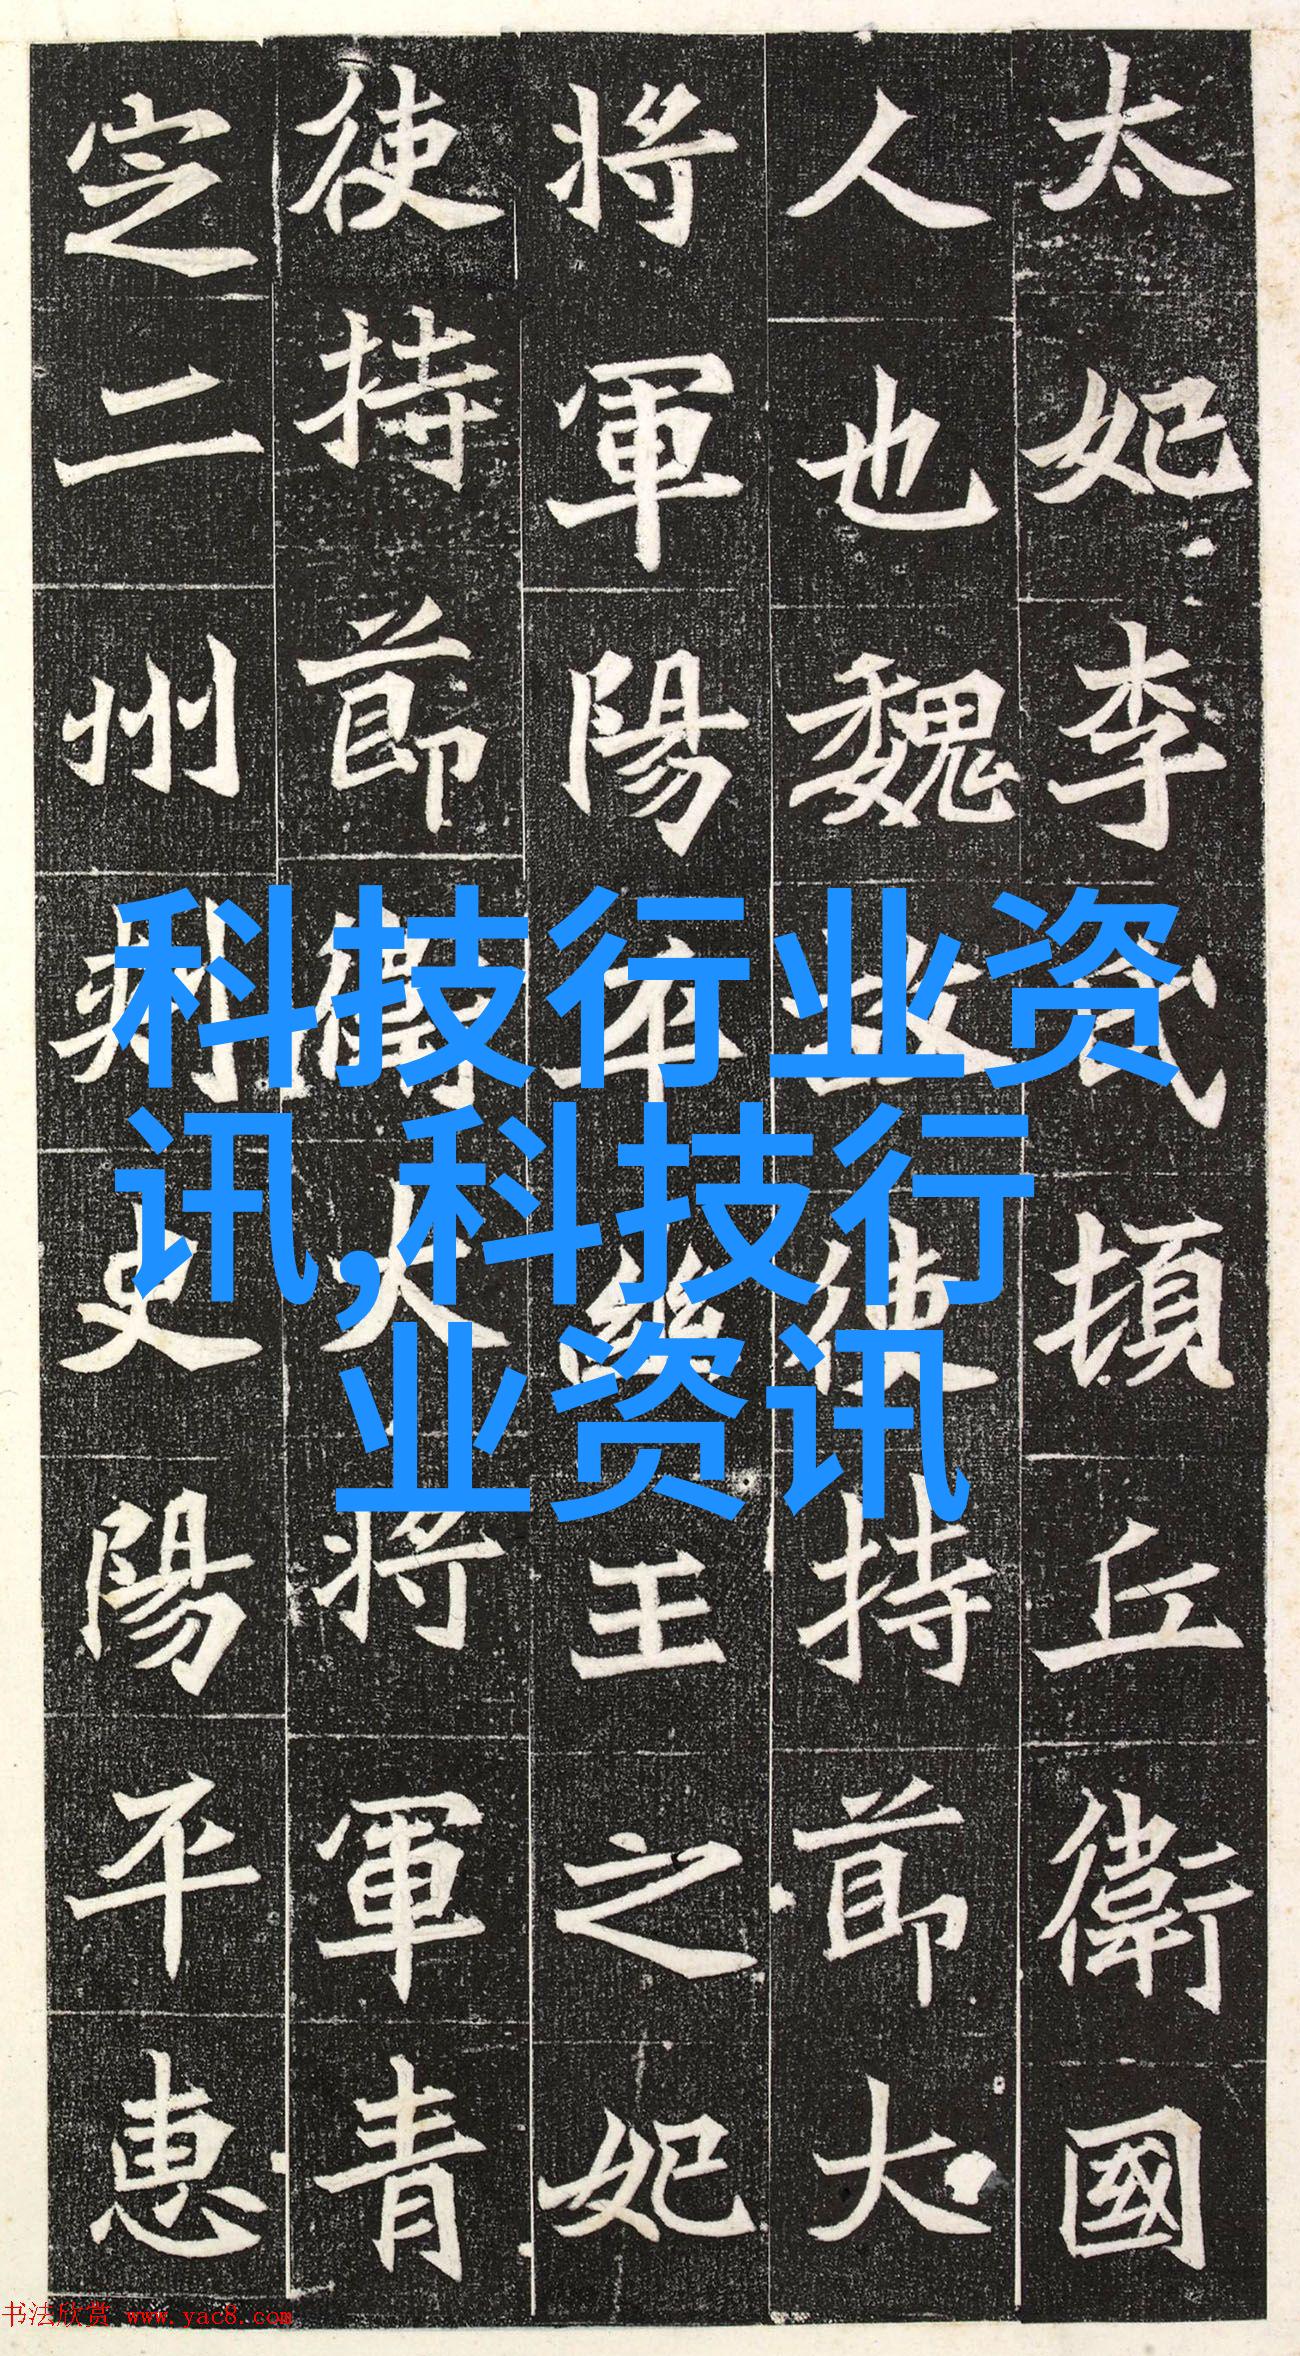 太妃李氏頓丘衛國
人也魏故使持節大
將軍陽平幽王之妃
使持節衛大將軍青
定二州刺史陽平惠
科技行业资
讯,科技行
业资讯
书法欣赏 www.yac8.com